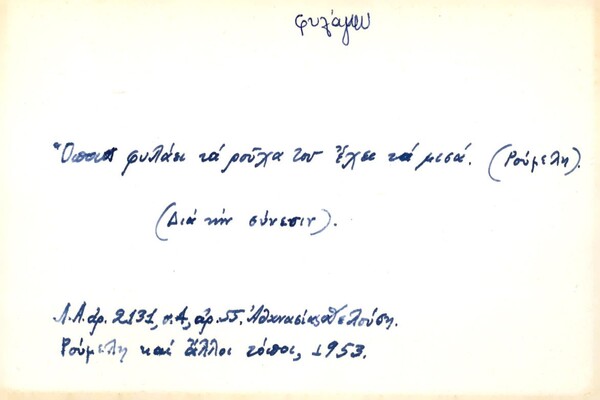 φυλάγω
Ὅποιος φυλάει τά ροῦχα του ἔχει τά μισά. (Ρούμελη).
(Διά τήν σύνεσιν).
Λ.Α. ἀρ. 2131, σ. 4, ἀρ. 55. Ἀθανασίας
Ρούμελη καί ἄλλοι τόποι, 1953.